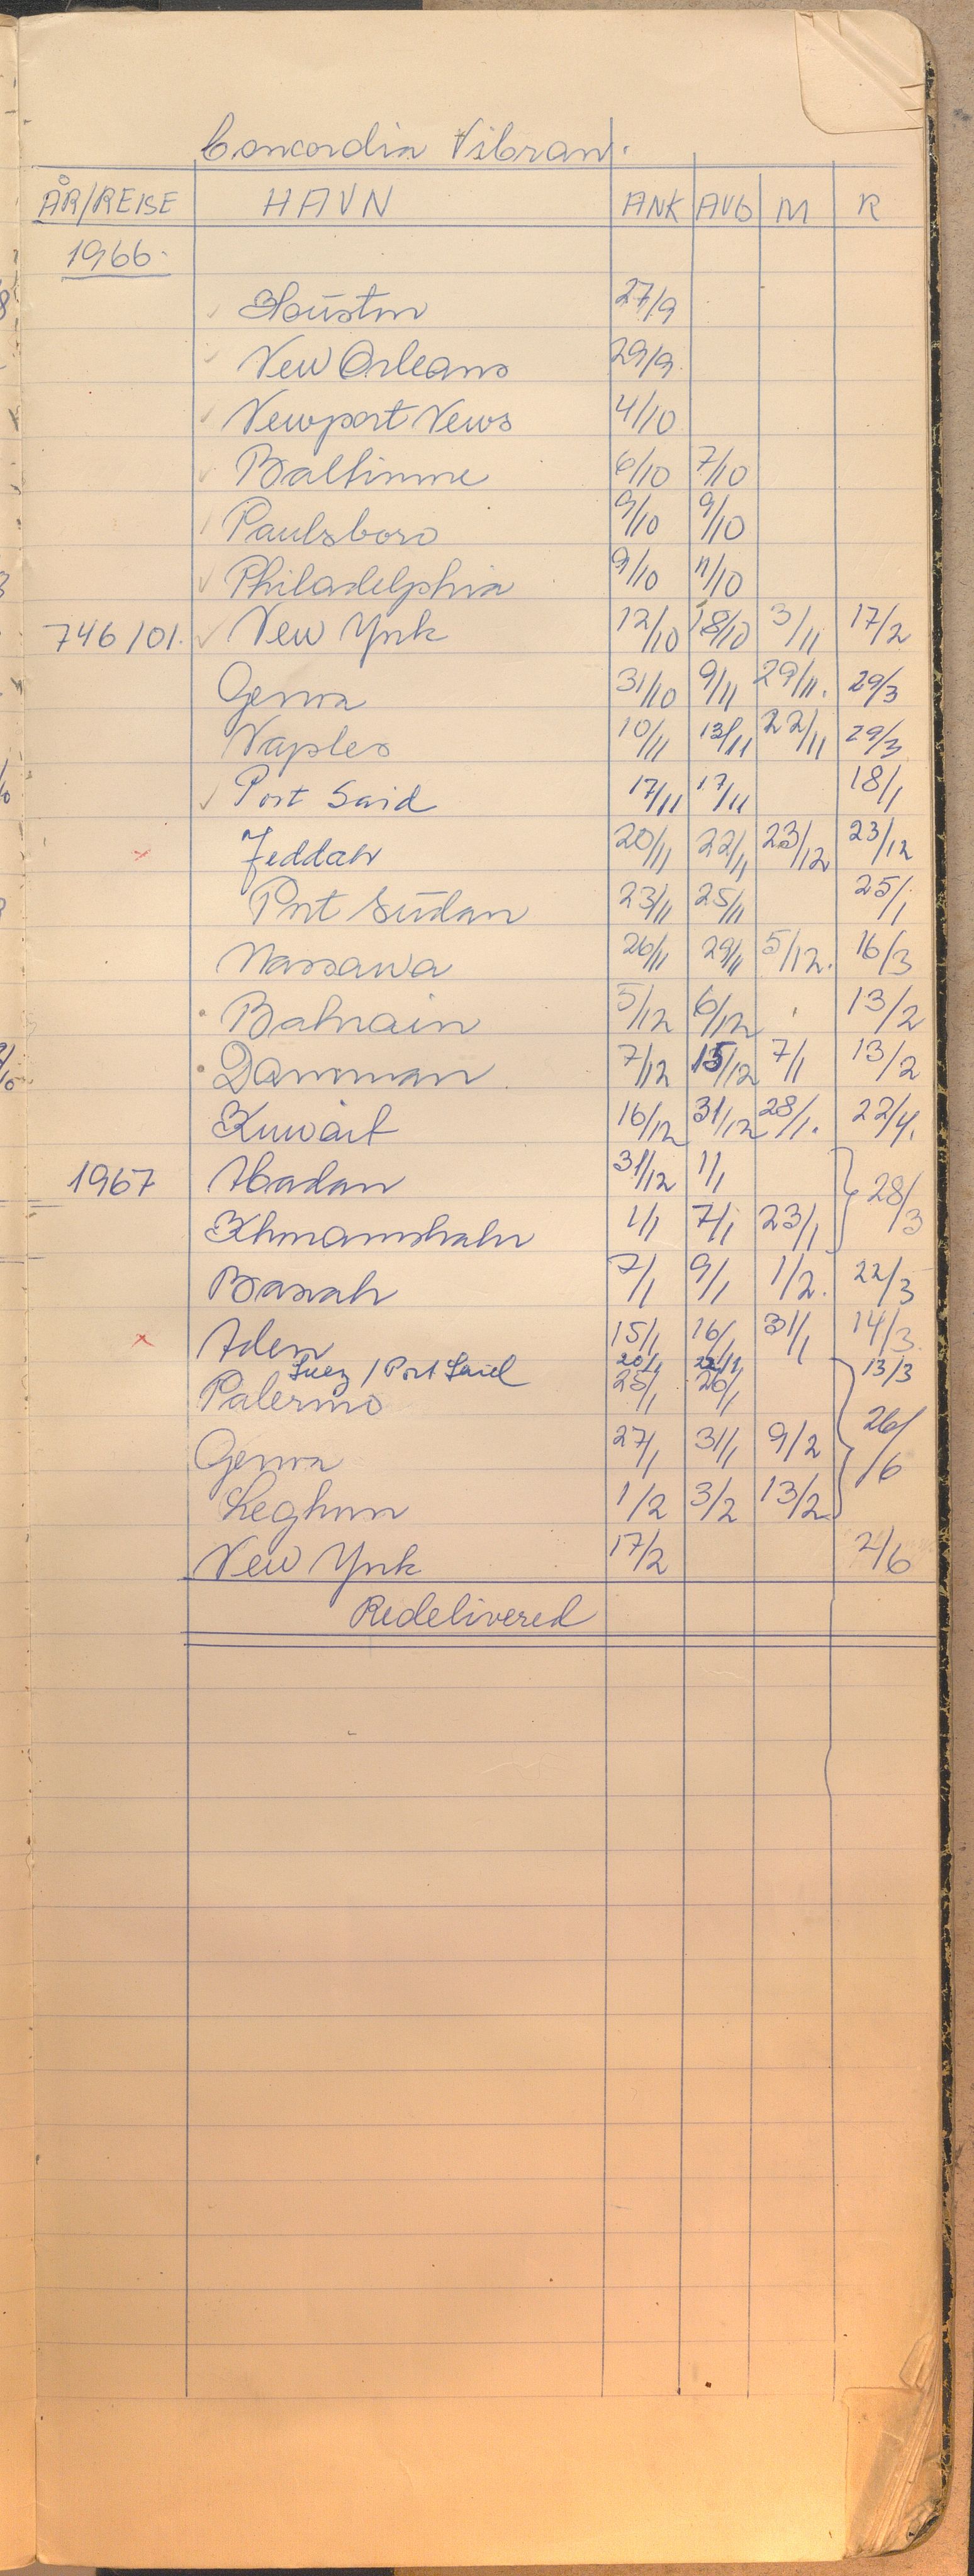 Concordia Vibran.
ÅR/REISE HAVN ANK AVG M R
1966.
Houston 27/9
New Orleans 29/9
Newport News 4/10
Baltimore 6/10 7/10
Paulsboro 9/10 9/10
Philadelphia 9/10 11/10
746/01. New York 12/10 18/10 3/11 17/2
Genoa 31/10 9/11 29/11. 29/3
Naples 10/11 13/11 22/11 29/3
Port Said 17/11 17/11 18/1
Jeddah 20/11 22/11 23/12 23/12
Port Sudan 23/11 25/11 25/1
Massawa 26/11 29/11 5/12. 16/3
Bahrain 5/12 6/12 13/2
Damman 7/12 15/12 7/1 13/2
Kuwait 16/12 31/12 28/1. 22/4.
1967 Abadan 31/12 1/1 28/3
Khoramshahr 1/1 7/1 23/1
Basrah 7/1 9/1 1/2. 22/3
Aden 15/1 16/1 31/1 14/3.
Suez / Port Said 20/1 22/1 13/3
Palermo 25/1 26/1
Genoa 27/1 31/1 9/2 26/6
Leghorn 1/2 3/2 13/2
New York 17/2 2/6
Redelivered